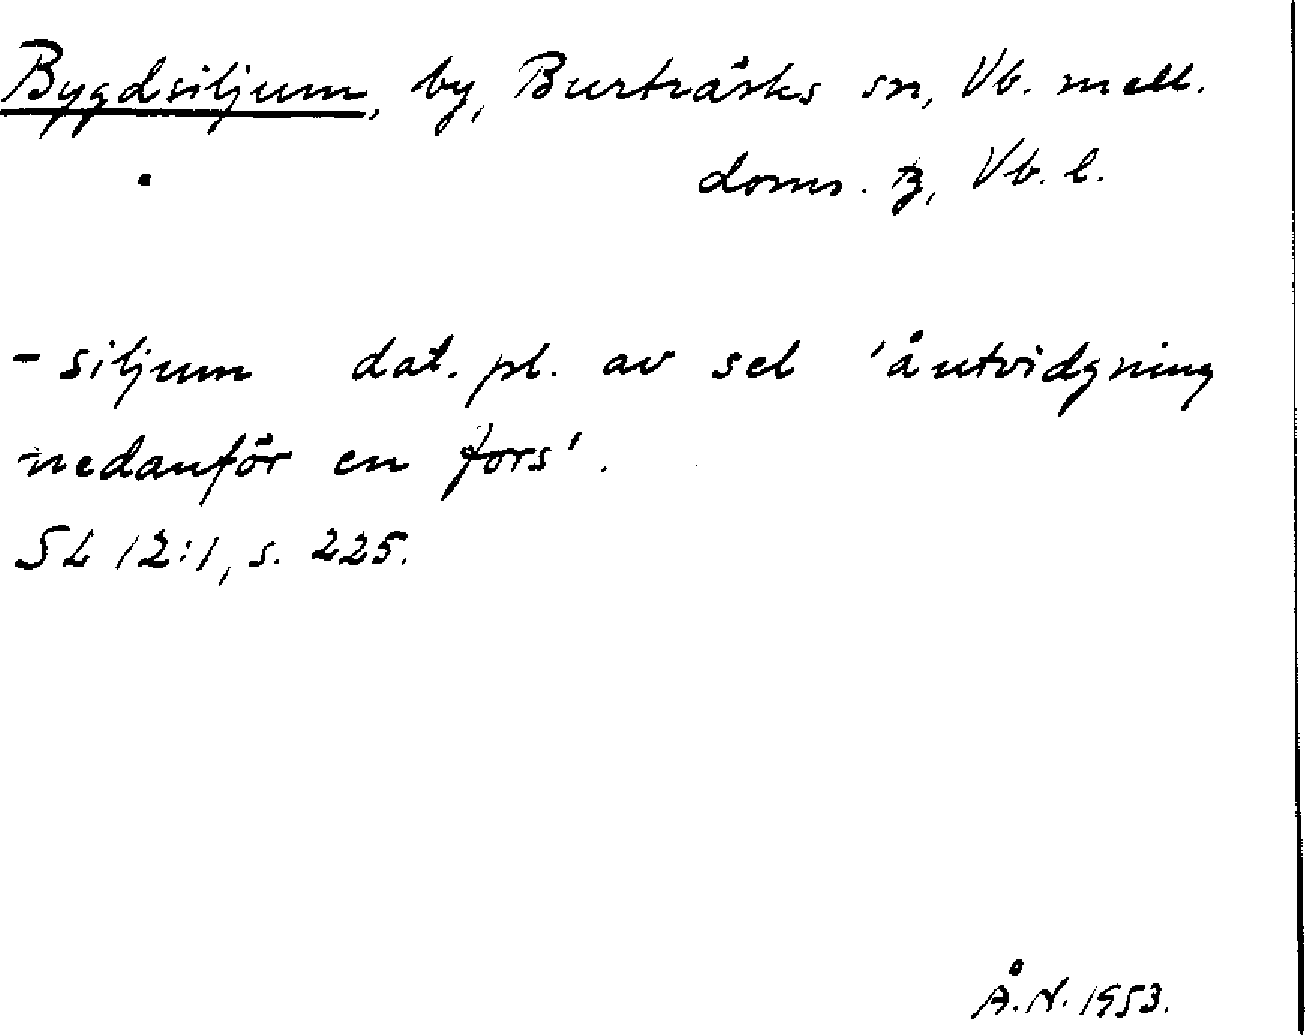 Bygdsiljum, by, Burträsks sn, Vb. mell.
doms. tg, Vb. l.
-siljum dat. pl. av sel 'åutvidgning
nedanför en fors'.
SL 12:1, s. 225.
Å.N. 1953.